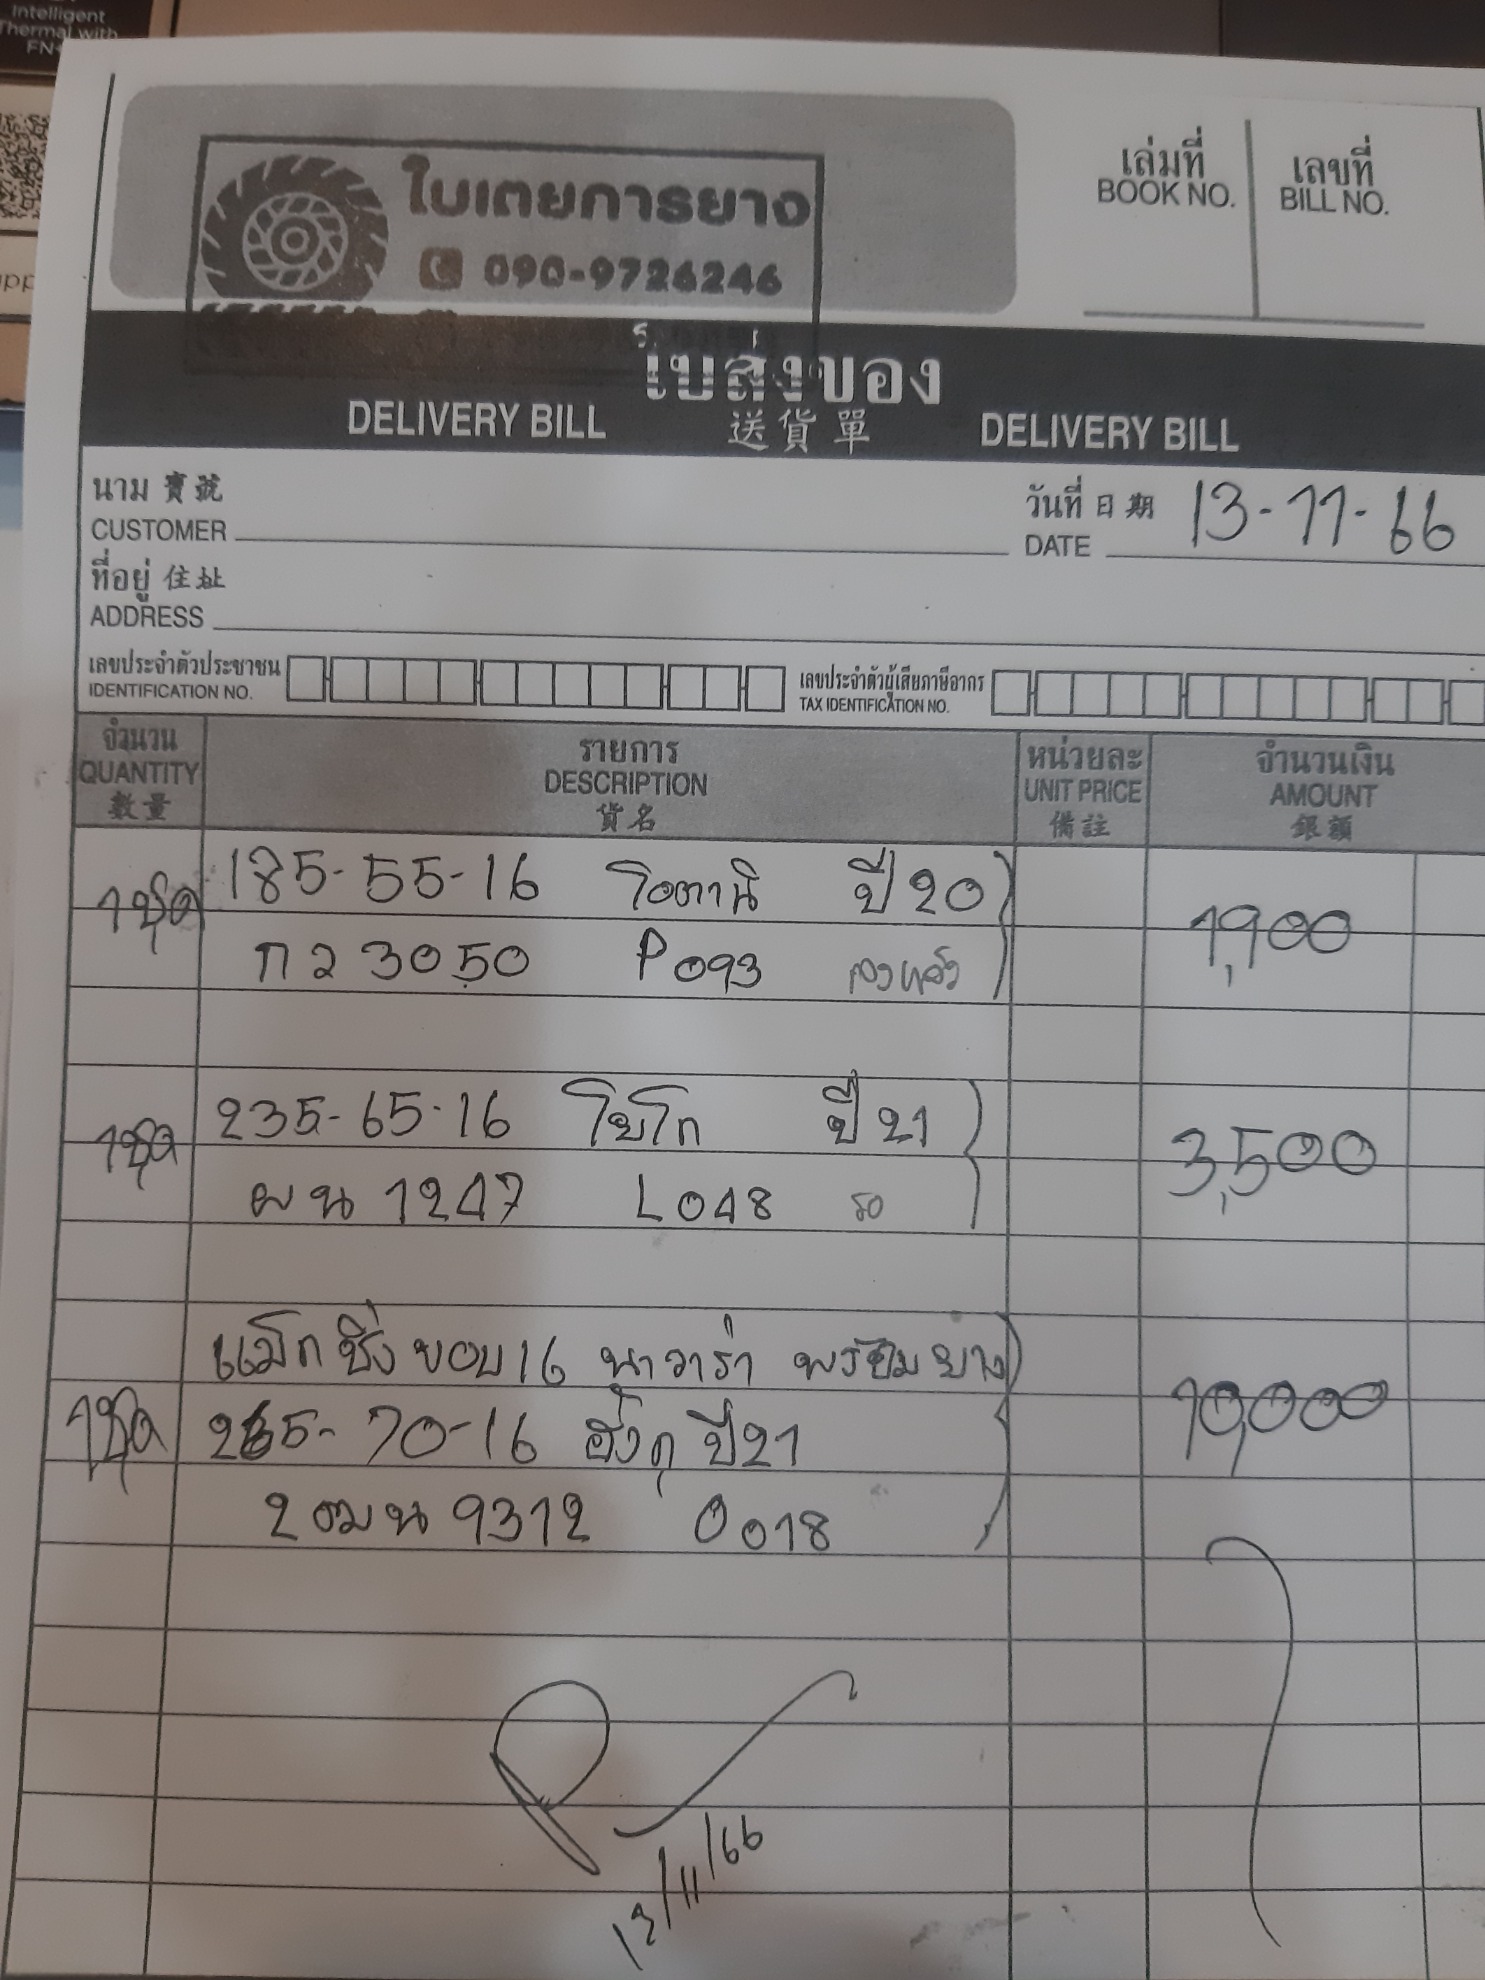 Intelligent
Thermal with
FN+
ใบเตยการยาง
090-9726246
เล่มที่
BOOK NO.
เลขที่
BILL NO.
ใบส่งของ
DELIVERY BILL 送貨單 DELIVERY BILL
นาม 寶號
CUSTOMER
วันที่ 日期 13-11-66
DATE
ที่อยู่ 住址
ADDRESS
เลขประจำตัวประชาชน
IDENTIFICATION NO.
เลขประจำตัวผู้เสียภาษีอากร
TAX IDENTIFICATION NO.
จำนวน
QUANTITY
數量
รายการ
DESCRIPTION
貨名
หน่วยละ
UNIT PRICE
備註
จำนวนเงิน
AMOUNT
銀額
1ชุด 185-55-16 โอตานิ ปี 20 1,900
ก2 3050 P093
1ชุด 235-65-16 โยโก ปี 21 3,500
ผน 1247 L048 รอ
แม็กซิ่ง ขอบ16 นาวาร่า พร้อมยาง
1ชุด 265-70-16 ฮั้งกุ ปี21 10,000
2ฒน 9312 0018
13/11/66